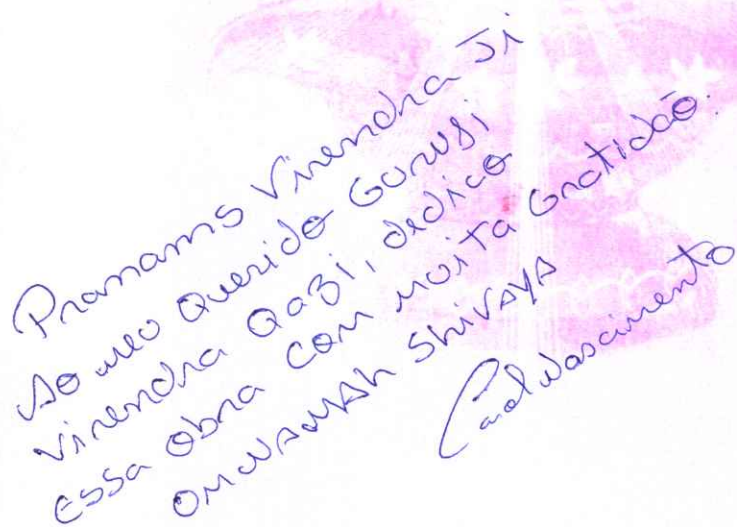 Pranams Virendra Ji
Ao meu Querido Guruji
Virendra Qazi, dedico
essa obra com muita Gratidão.
OM NAMAH ShivAYA
Carol Nascimento